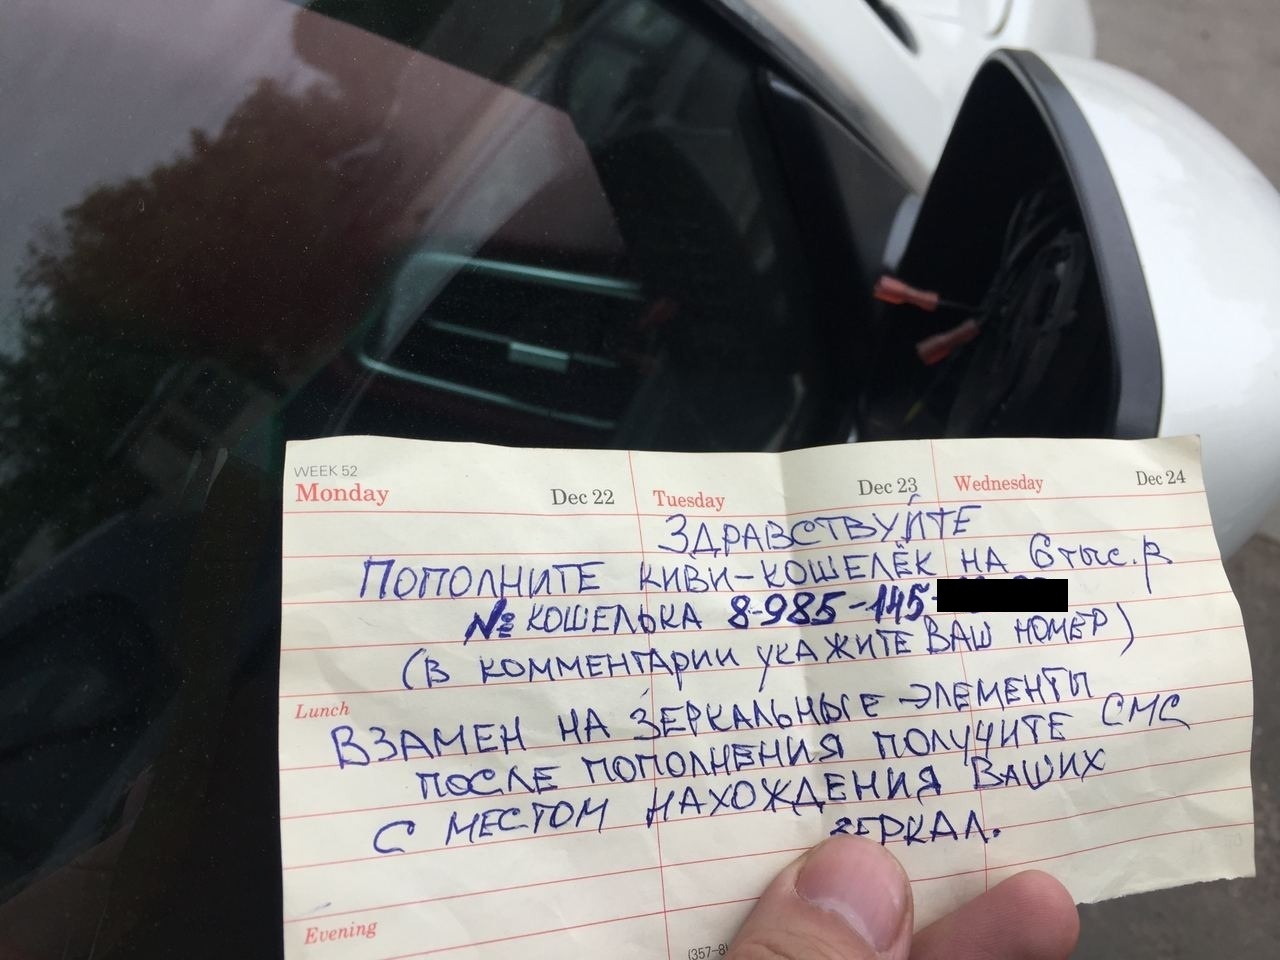 WEEK 52
Monday Dec 22 Tuesday Dec 23 Wednesday Dec 24
ЗДРАВСТВУЙТЕ
ПОПОЛНИТЕ КИВИ-КОШЕЛЁК НА 6 тыс. р
№ КОШЕЛЬКА 8-985-145-
(В КОММЕНТАРИИ УКАЖИТЕ ВАШ НОМЕР)
Lunch
ВЗАМЕН НА ЗЕРКАЛЬНЫЕ ЭЛЕМЕНТЫ
ПОСЛЕ ПОПОЛНЕНИЯ ПОЛУЧИТЕ СМС
С МЕСТОМ НАХОЖДЕНИЯ ВАШИХ
ЗЕРКАЛ.
Evening
(357-8